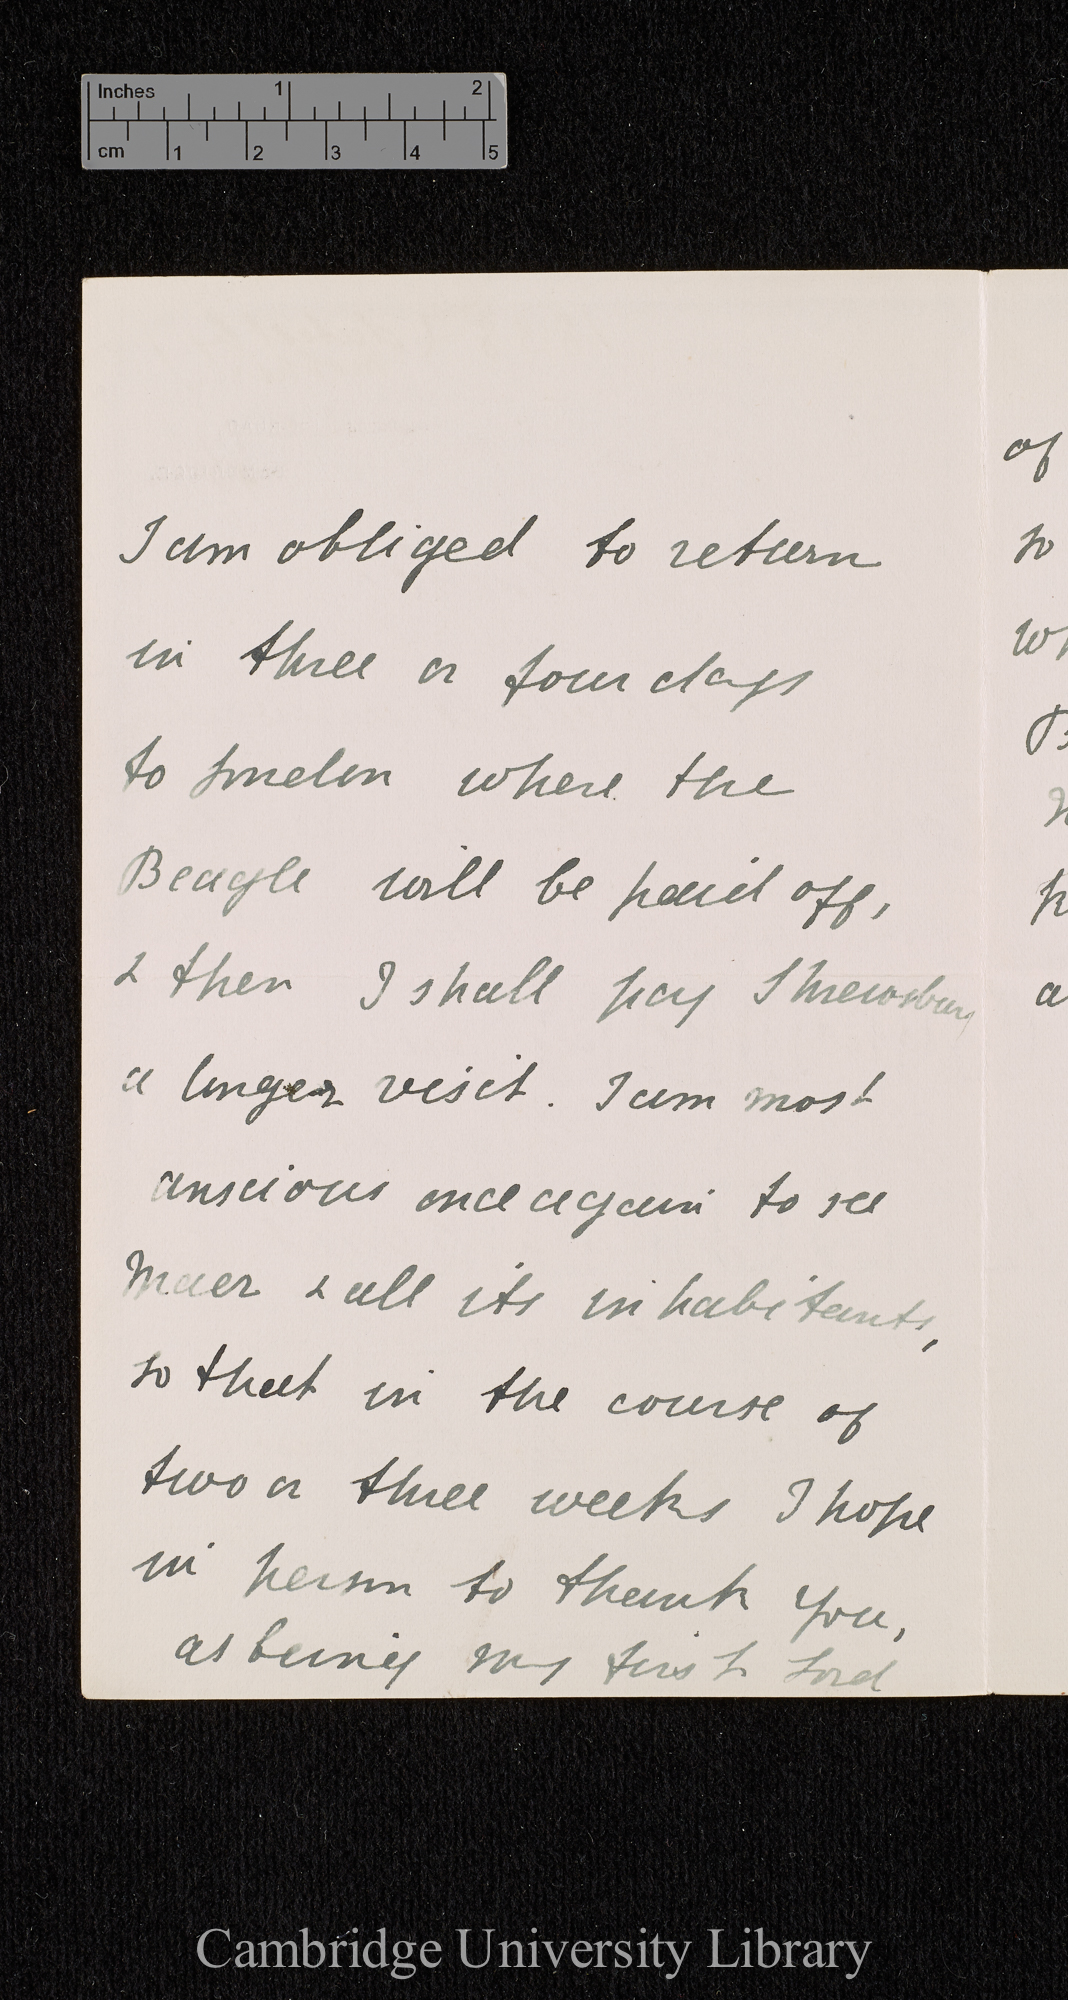 Inches 1 2
cm 1 2 3 4 5
I am obliged to return
in three or four days
to London where the
Beagle will be paid off,
& then I shall pay Shrewsbury
a longer visit. I am most
anxious once again to see
Maer & all its inhabitants,
so that in the course of
two or three weeks I hope
in person to thank you,
as being my first Lord
of
so
wh
a
Cambridge University Library